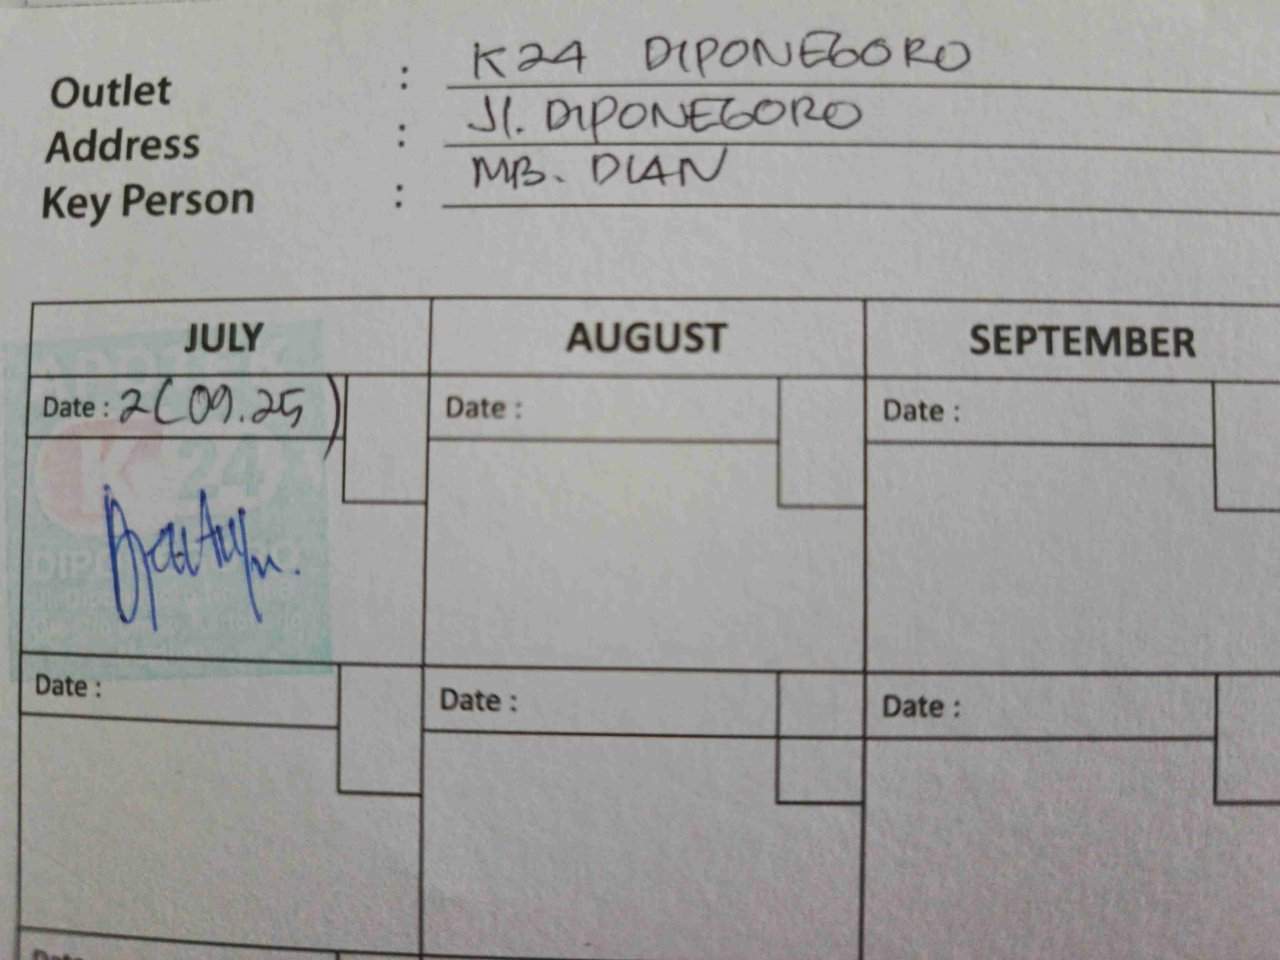 Outlet : K24 DIPONEGORO
Address : Jl. DIPONEGORO
Key Person : MB. DIAN
JULY AUGUST SEPTEMBER
Date : 2(09.25) Date : Date :
K 24
Date : Date : Date :
Date